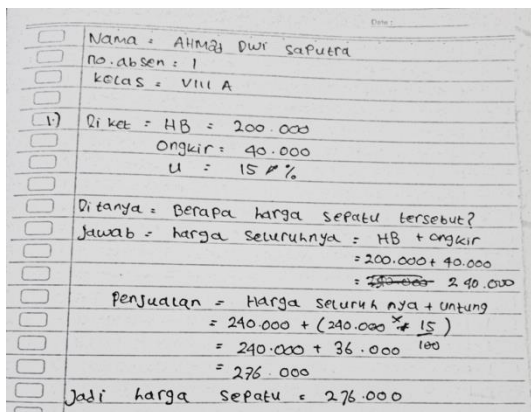 Date :
Nama : AHMad Dwi Saputra
no. absen : 1
kelas : VIII A
1.) Diket : HB : 200.000
Ongkir : 40.000
U : 15 %
Ditanya : Berapa harga sepatu tersebut?
Jawab : harga seluruhnya : HB + ongkir
= 200.000 + 40.000
= 240.000
Penjualan = Harga seluruh nya + untung
= 240.000 + (240.000 × 15/100)
= 240.000 + 36.000
= 276.000
Jadi harga sepatu = 276.000